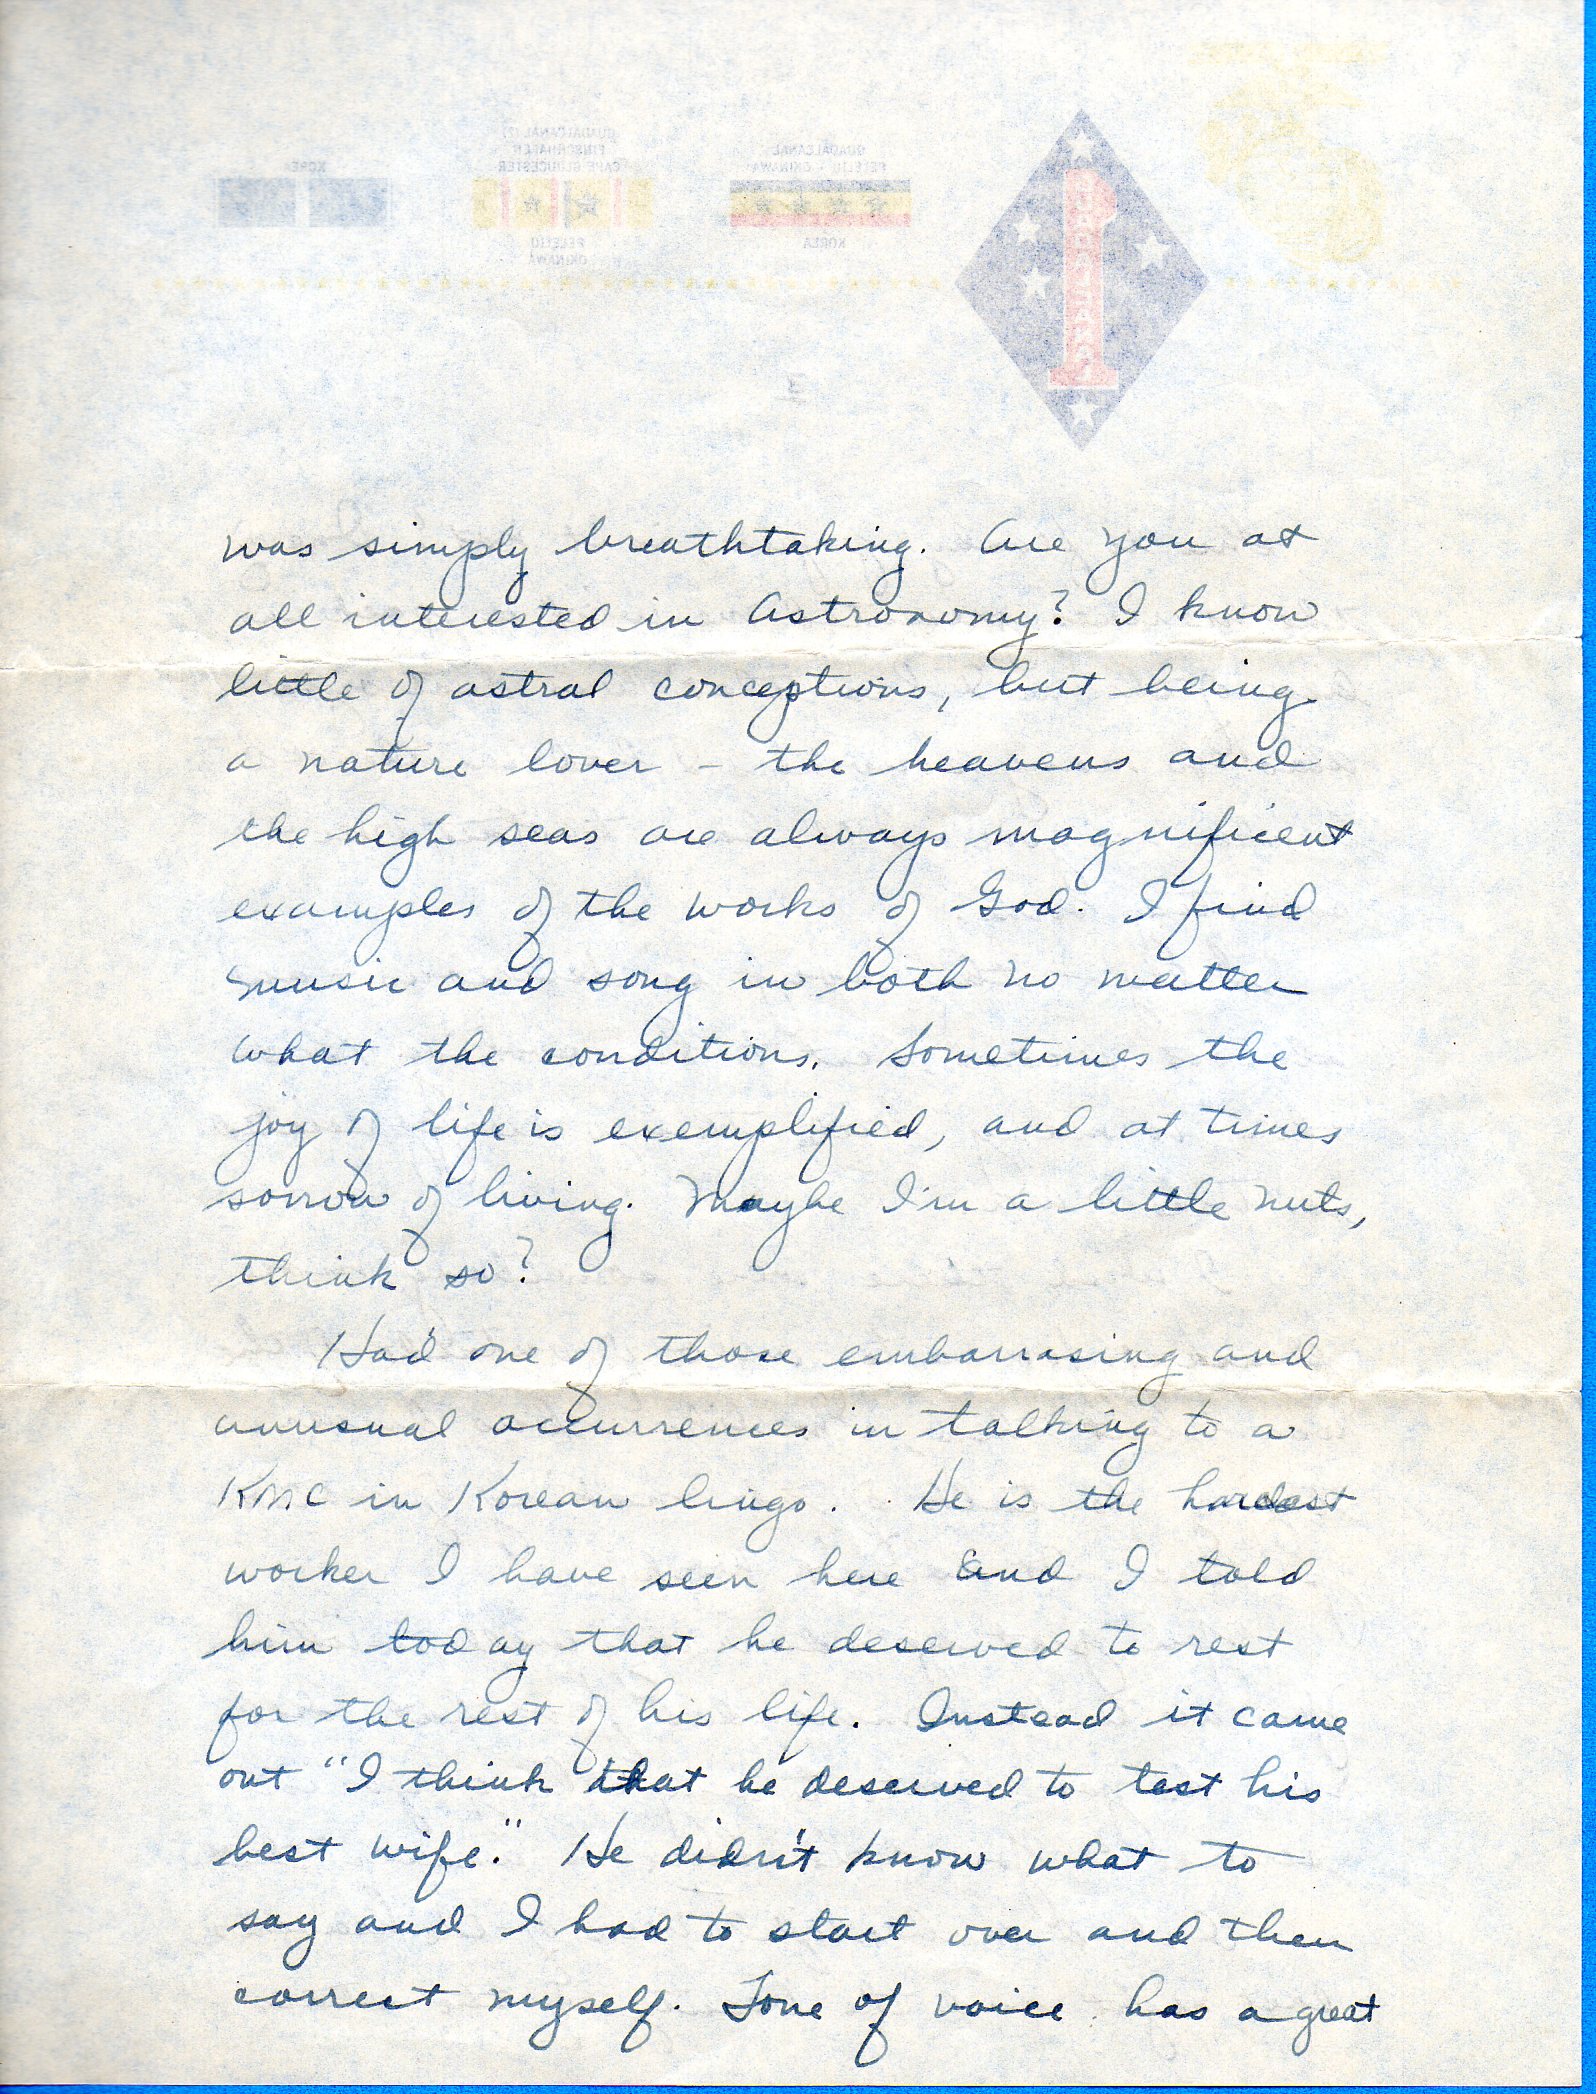 GUADALCANAL (2)
FINSCHHAFEN
CAPE GLOUCESTER
PELELIU
OKINAWA
KOREA
GUADALCANAL
PELELIU - OKINAWA
KOREA
1
GUADALCANAL
was simply breathtaking. Are you at
all interested in Astronomy? I know
little of astral conceptions, but being
a nature lover – the heavens and
the high seas are always magnificent
examples of the works of God. I find
music and song in both no matter
what the conditions. Sometimes the
joy of life is exemplified, and at times
sorrow of living. Maybe I'm a little nuts,
think so?
Had one of those embarrasing and
unusual occurrences in talking to a
KMC in Korean lingo. He is the hardest
worker I have seen here and I told
him today that he deserved to rest
for the rest of his life. Instead it came
out "I think that he deserved to test his
best wife." He didn't know what to
say and I had to start over and then
correct myself. Tone of voice has a great